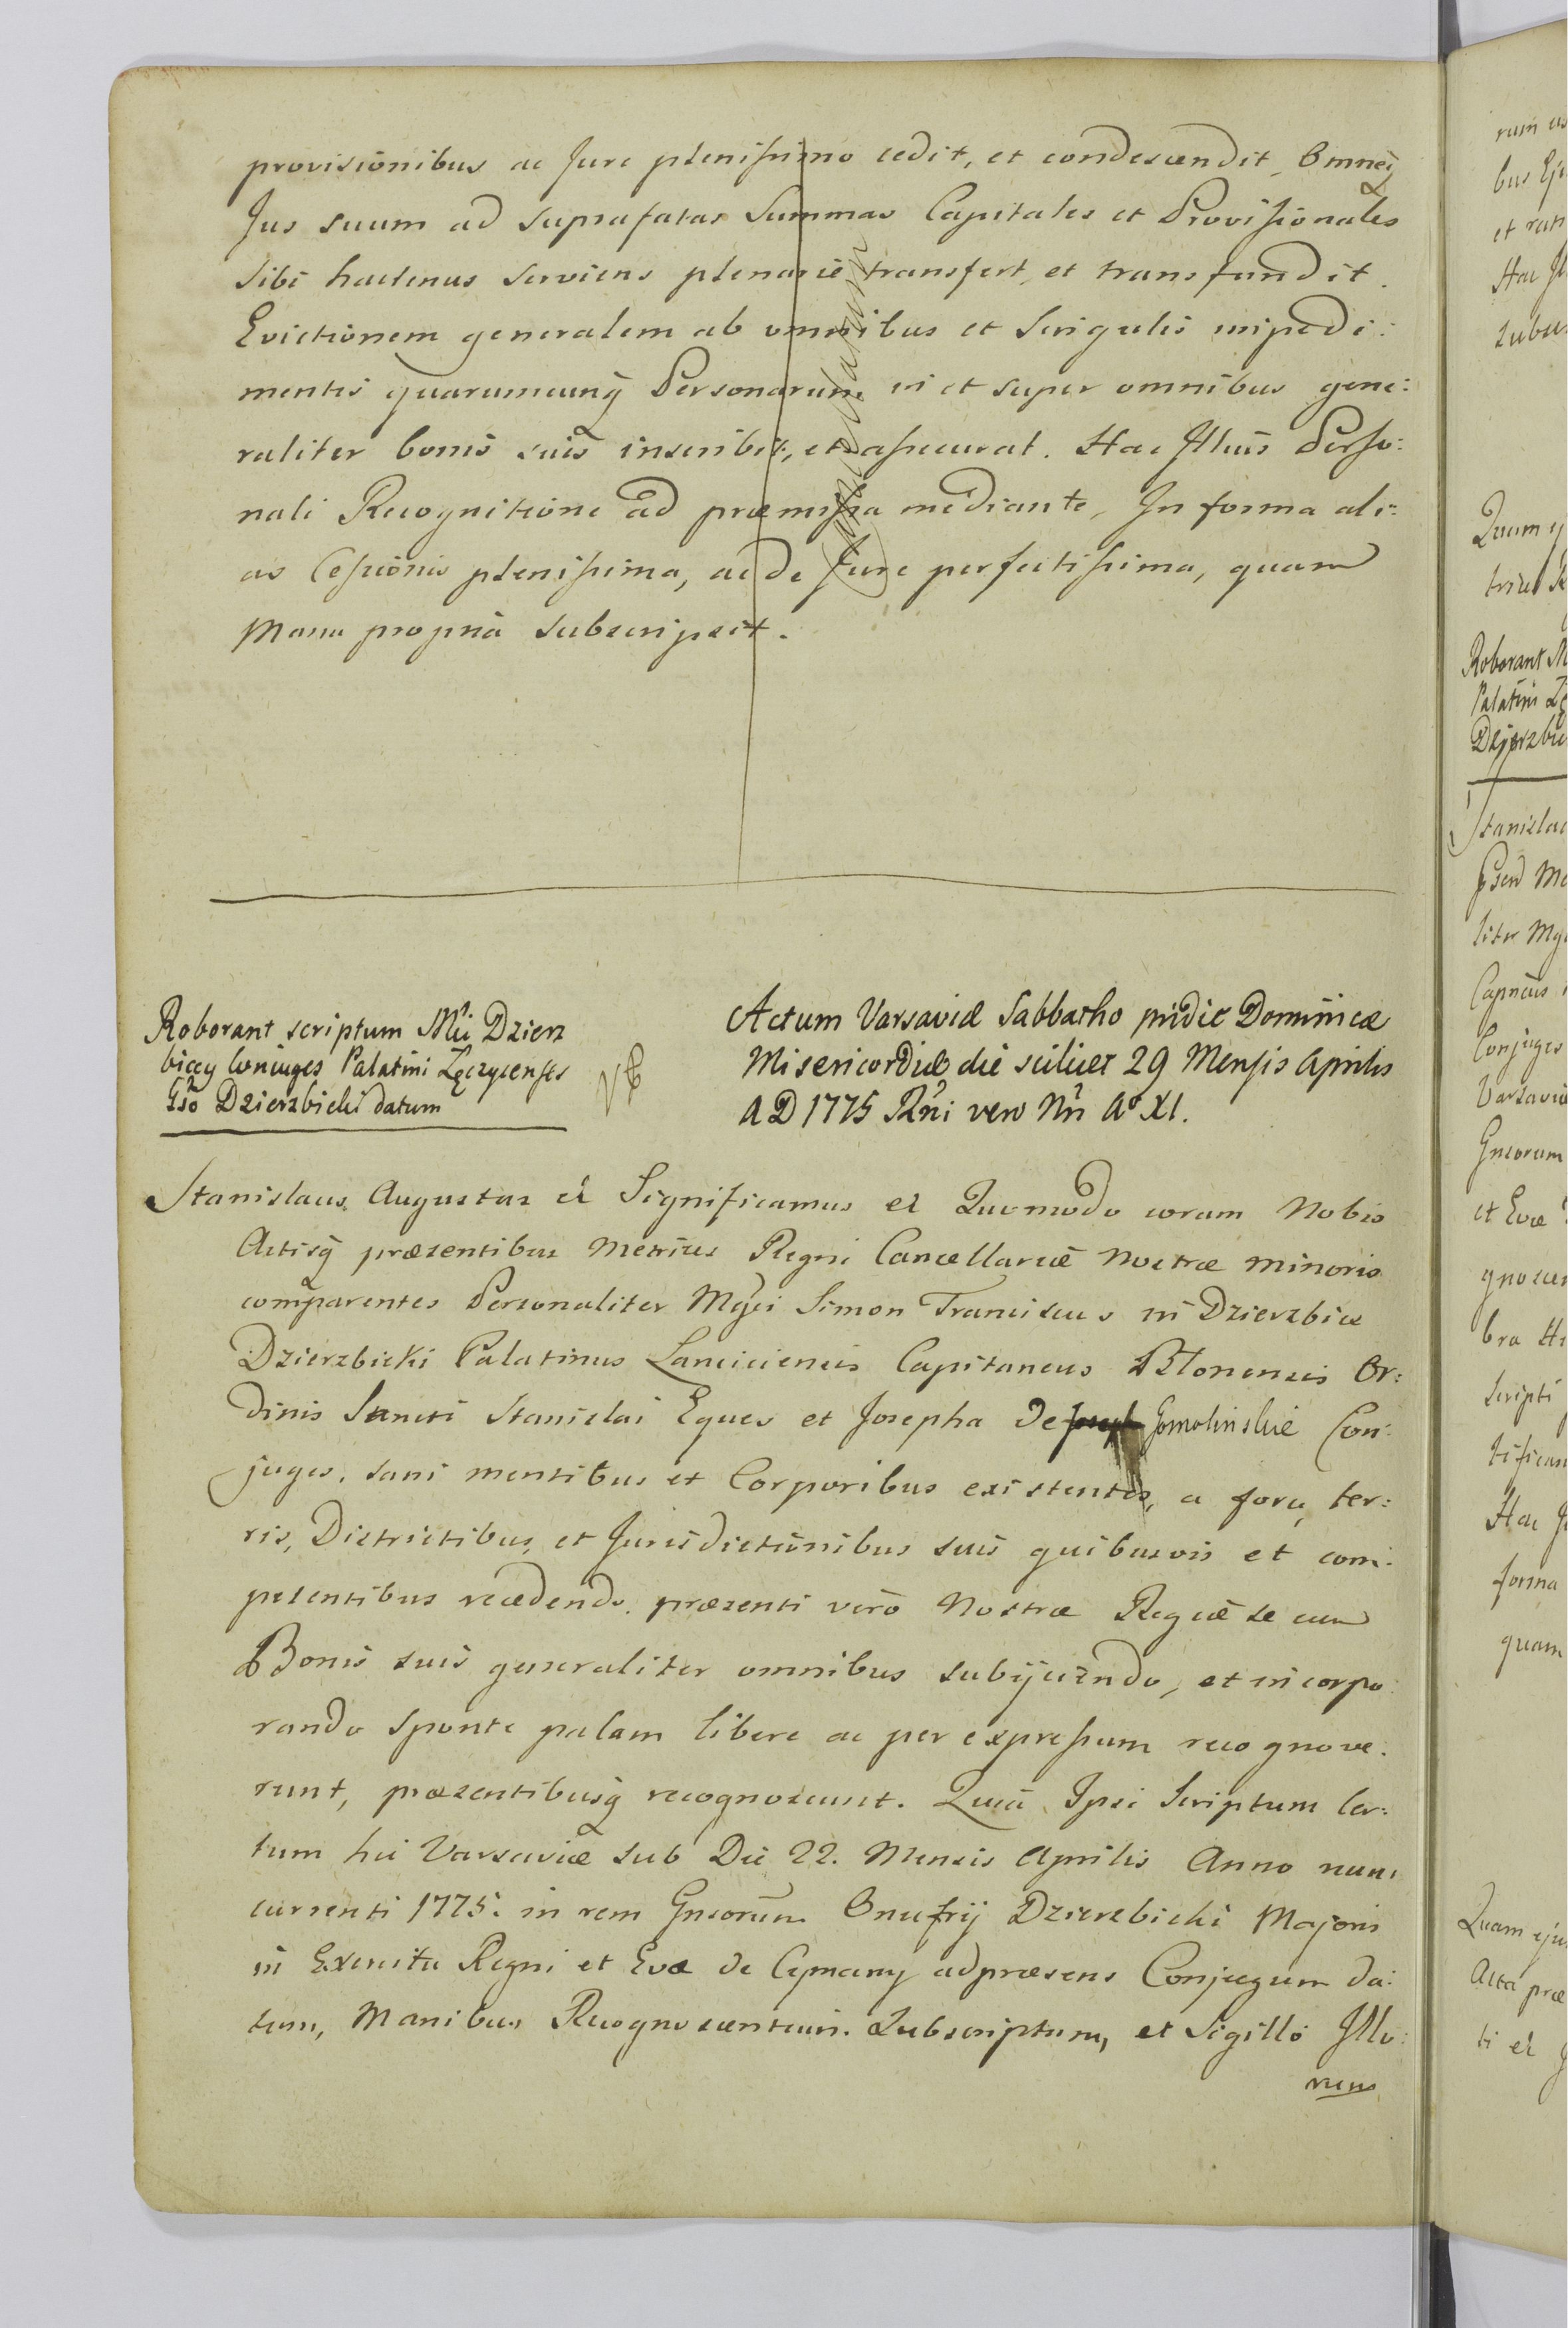 provisionibus ac Jure plenissimo cedit, et condescendit, Omneq̃
Jus suum ad suprafatas Summas Capitales et Provisionales
sibi hactenus serviens plenarie transfert, et transfundit.
Evictionem generalem ab omnibus et singulis impedi:
mentis quarumcunq̃ Personarum in et super omnibus gene:
raliter bonis suis inscribit, et assecurat. Hac Illius Perso:
nali Recognitione ad præmissa mediante, In forma ali:
as Cessionis plenissima, ac de Jure perfectissima, quam
Manu propria subscripsit.
Roborant scriptum Mci Dzierz
biccy Coniuges Palatini Łęczycenses
Gso Dzierzbicki datum
Actum Varsaviæ Sabbatho pridie Dominicæ
Misericordiæ die scilicet 29 Mensis Aprilis
A D 1775 Rñi vero Nñ Aº XI.
Stanislaus Augustus et Significamus et Quomodo coram Nobis
Actisq̃ præsentibus Metrices Regni Cancellariæ Nostræ minoris
comparentes Personaliter Mgci Simon Franciscus in Dzierzbice
Dzierzbicki Palatinus Lanciciensis Capitaneus Błonensis Or:
dinis Sancti Stanislai Eques et Josepha de Gomolinskie Con:
juges, sani mentibus et Corporibus existentes, a foru, ter:
ris, Districtibus, et Jurisdictionibus suis quibusvis et com:
petentibus recedendo, præsenti verò Nostræ Regiæ se cum
Bonis suis generaliter omnibus subijciendo, et incorpo:
rando sponte palam libere ac per expressum recognove:
runt, præsentibusq̃ recognoscunt. Quia Ipsi Scriptum cer:
tum hic Varsaviæ sub Die 22. Mensis Aprilis Anno nunc
currenti 1775. in rem Gnsorum Onufrij Dzierzbicki Majoris
in Exercitu Regni et Evæ de Cymany adpræsens Conjugum da:
tum, Manibus Recognoscentium Subscriptum, et Sigillo Illo:
rum